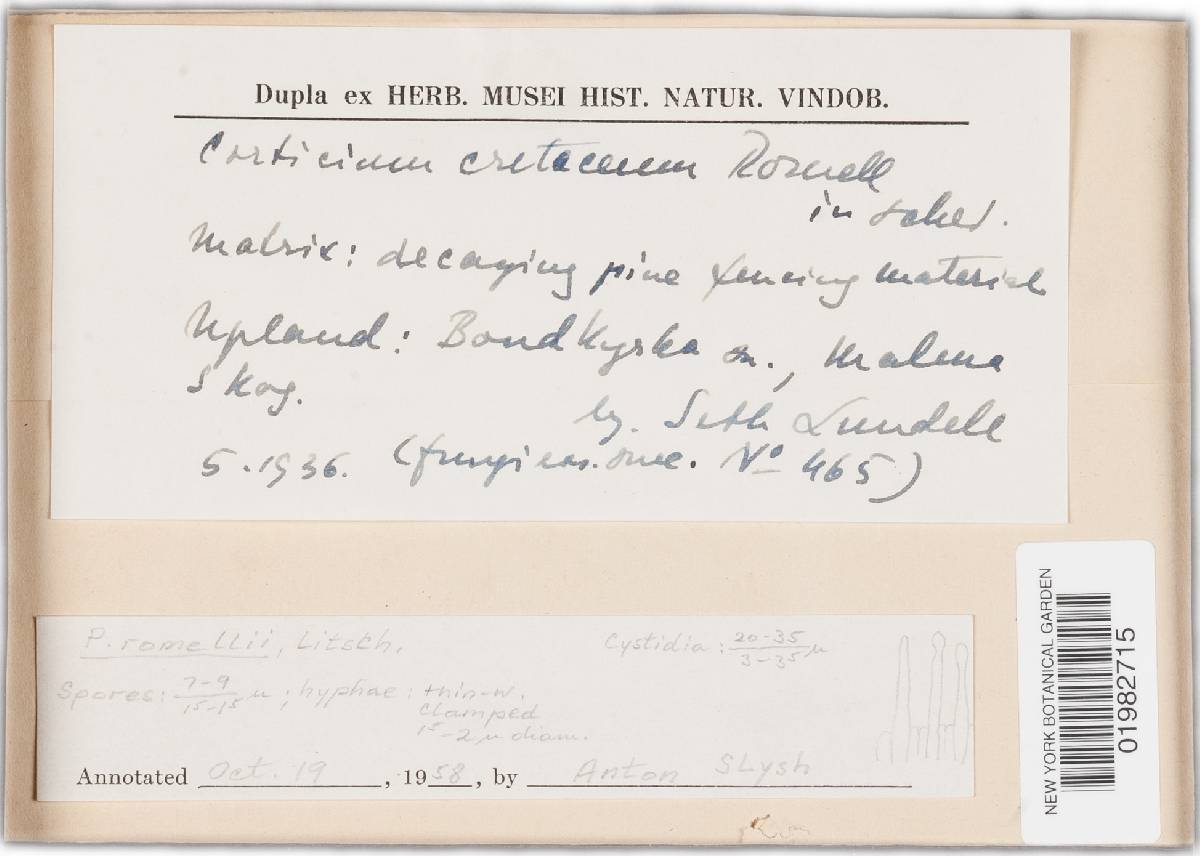 Dupla ex HERB. MUSEI HIST. NATUR. VINDOB.
Corticium cretaceum Romell
in sched.
Matrix: decaying pine fencing material
Upland: Bondkyrka sn., Malma
Skog.
lg. Seth Lundell
5.1936. (fungi exs. suec. Nº 465)
P. romellii, Litsch.
Cystidia: 20-35 / 3-35 µ
Spores: 7-9 / 15-15 µ; hyphae: thin-w.
clamped
15-2 µ diam.
Annotated Oct. 19, 1958, by Anton Slysh
NEW YORK BOTANICAL GARDEN
01982715